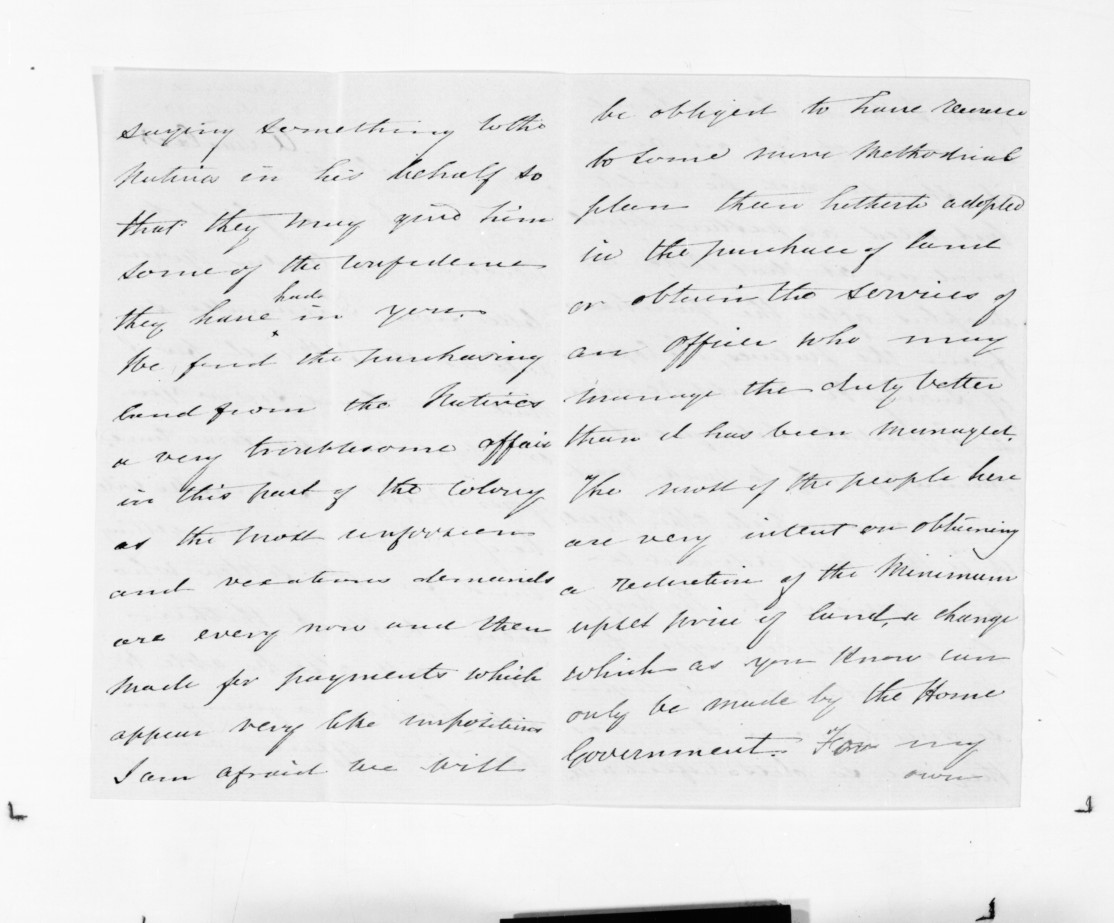 saying something to the
Natives in his behalf so
that they may give him
some of the confidence
they have had in you.
We find the purchasing
land from the Natives
a very troublesome affair
in this part of the Colony
as the most unforseen
and vexatious demands
are every now and then
made for payments which
appear very like impositions
I am afraid we will
be obliged to have recourse
to some more Methodical
plan than hitherto adopted
in the purchase of land
or obtain the services of
an officer who may
manage the duty better
than it has been managed.
The most of the people here
are very intent on obtaining
a reduction of the Minimum
upset price of land, a change
which as you know can
only be made by the Home
Government. For my
own